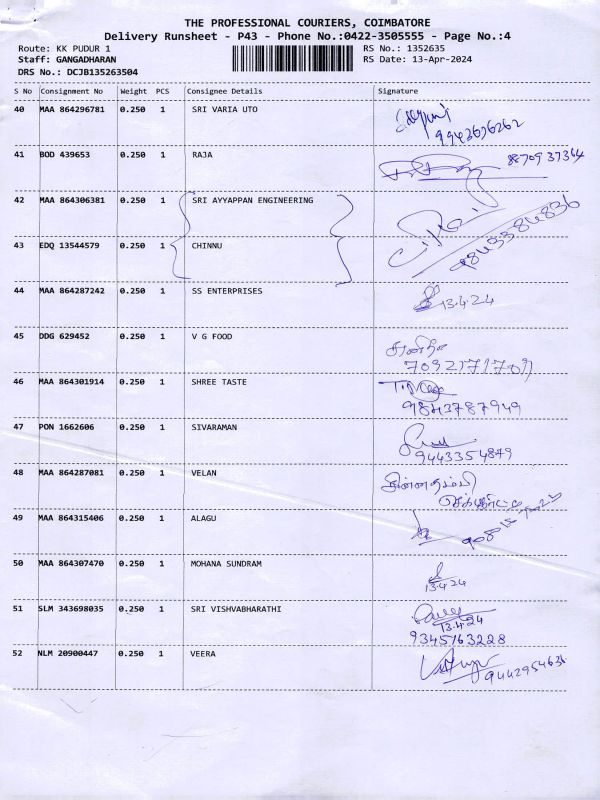 THE PROFESSIONAL COURIERS, COIMBATORE
Delivery Runsheet - P43 - Phone No.:0422-3505555 - Page No.:4
Route: KK PUDUR 1 RS No.: 1352635
Staff: GANGADHARAN RS Date: 13-Apr-2024
DRS No.: DCJB135263504
S No Consignment No Weight PCS Consignee Details Signature
40 MAA 864296781 0.250 1 SRI VARIA UTO
9943676262
41 BOD 439653 0.250 1 RAJA
42 MAA 864306381 0.250 1 SRI AYYAPPAN ENGINEERING
9843384836
43 EDQ 13544579 0.250 1 CHINNU
44 MAA 864287242 0.250 1 SS ENTERPRISES 13.4.24
45 DDG 629452 0.250 1 V G FOOD
46 MAA 864301914 0.250 1 SHREE TASTE
9843787949
47 PON 1662606 0.250 1 SIVARAMAN
9443354849
48 MAA 864287081 0.250 1 VELAN
49 MAA 864315406 0.250 1 ALAGU
50 MAA 864307470 0.250 1 MOHANA SUNDRAM
13.4.24
51 SLM 343698035 0.250 1 SRI VISHVABHARATHI
13.4.24
9345763228
52 NLM 20900447 0.250 1 VEERA
9442954636